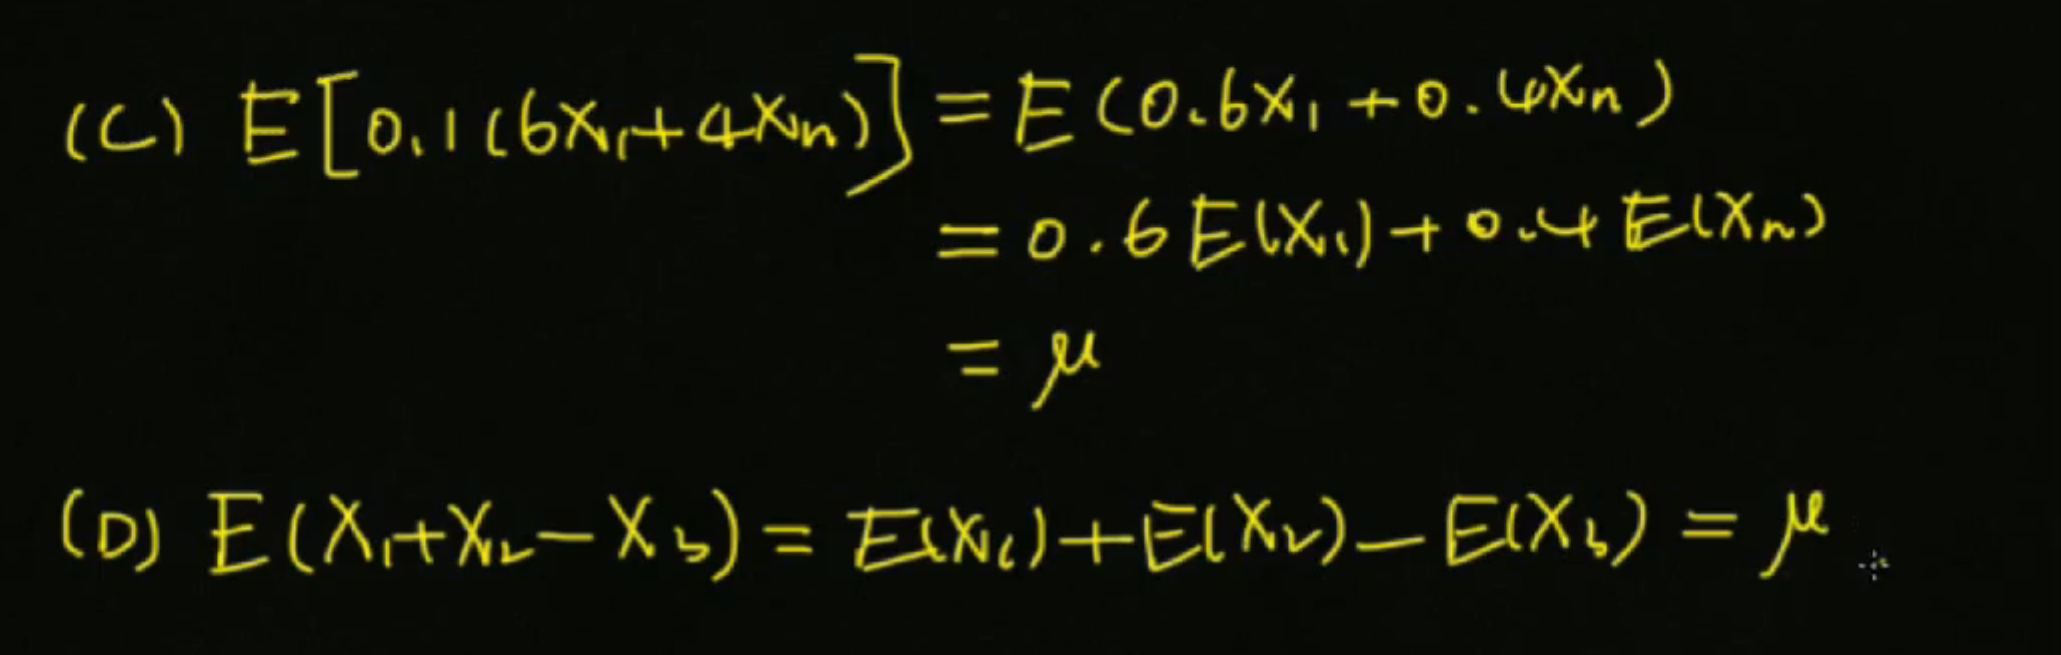 (C) E[0.1(6X₁+4Xₙ)] = E(0.6X₁+0.4Xₙ)
= 0.6E(X₁)+0.4E(Xₙ)
= μ
(D) E(X₁+X₂-X₃) = E(X₁)+E(X₂)-E(X₃) = μ